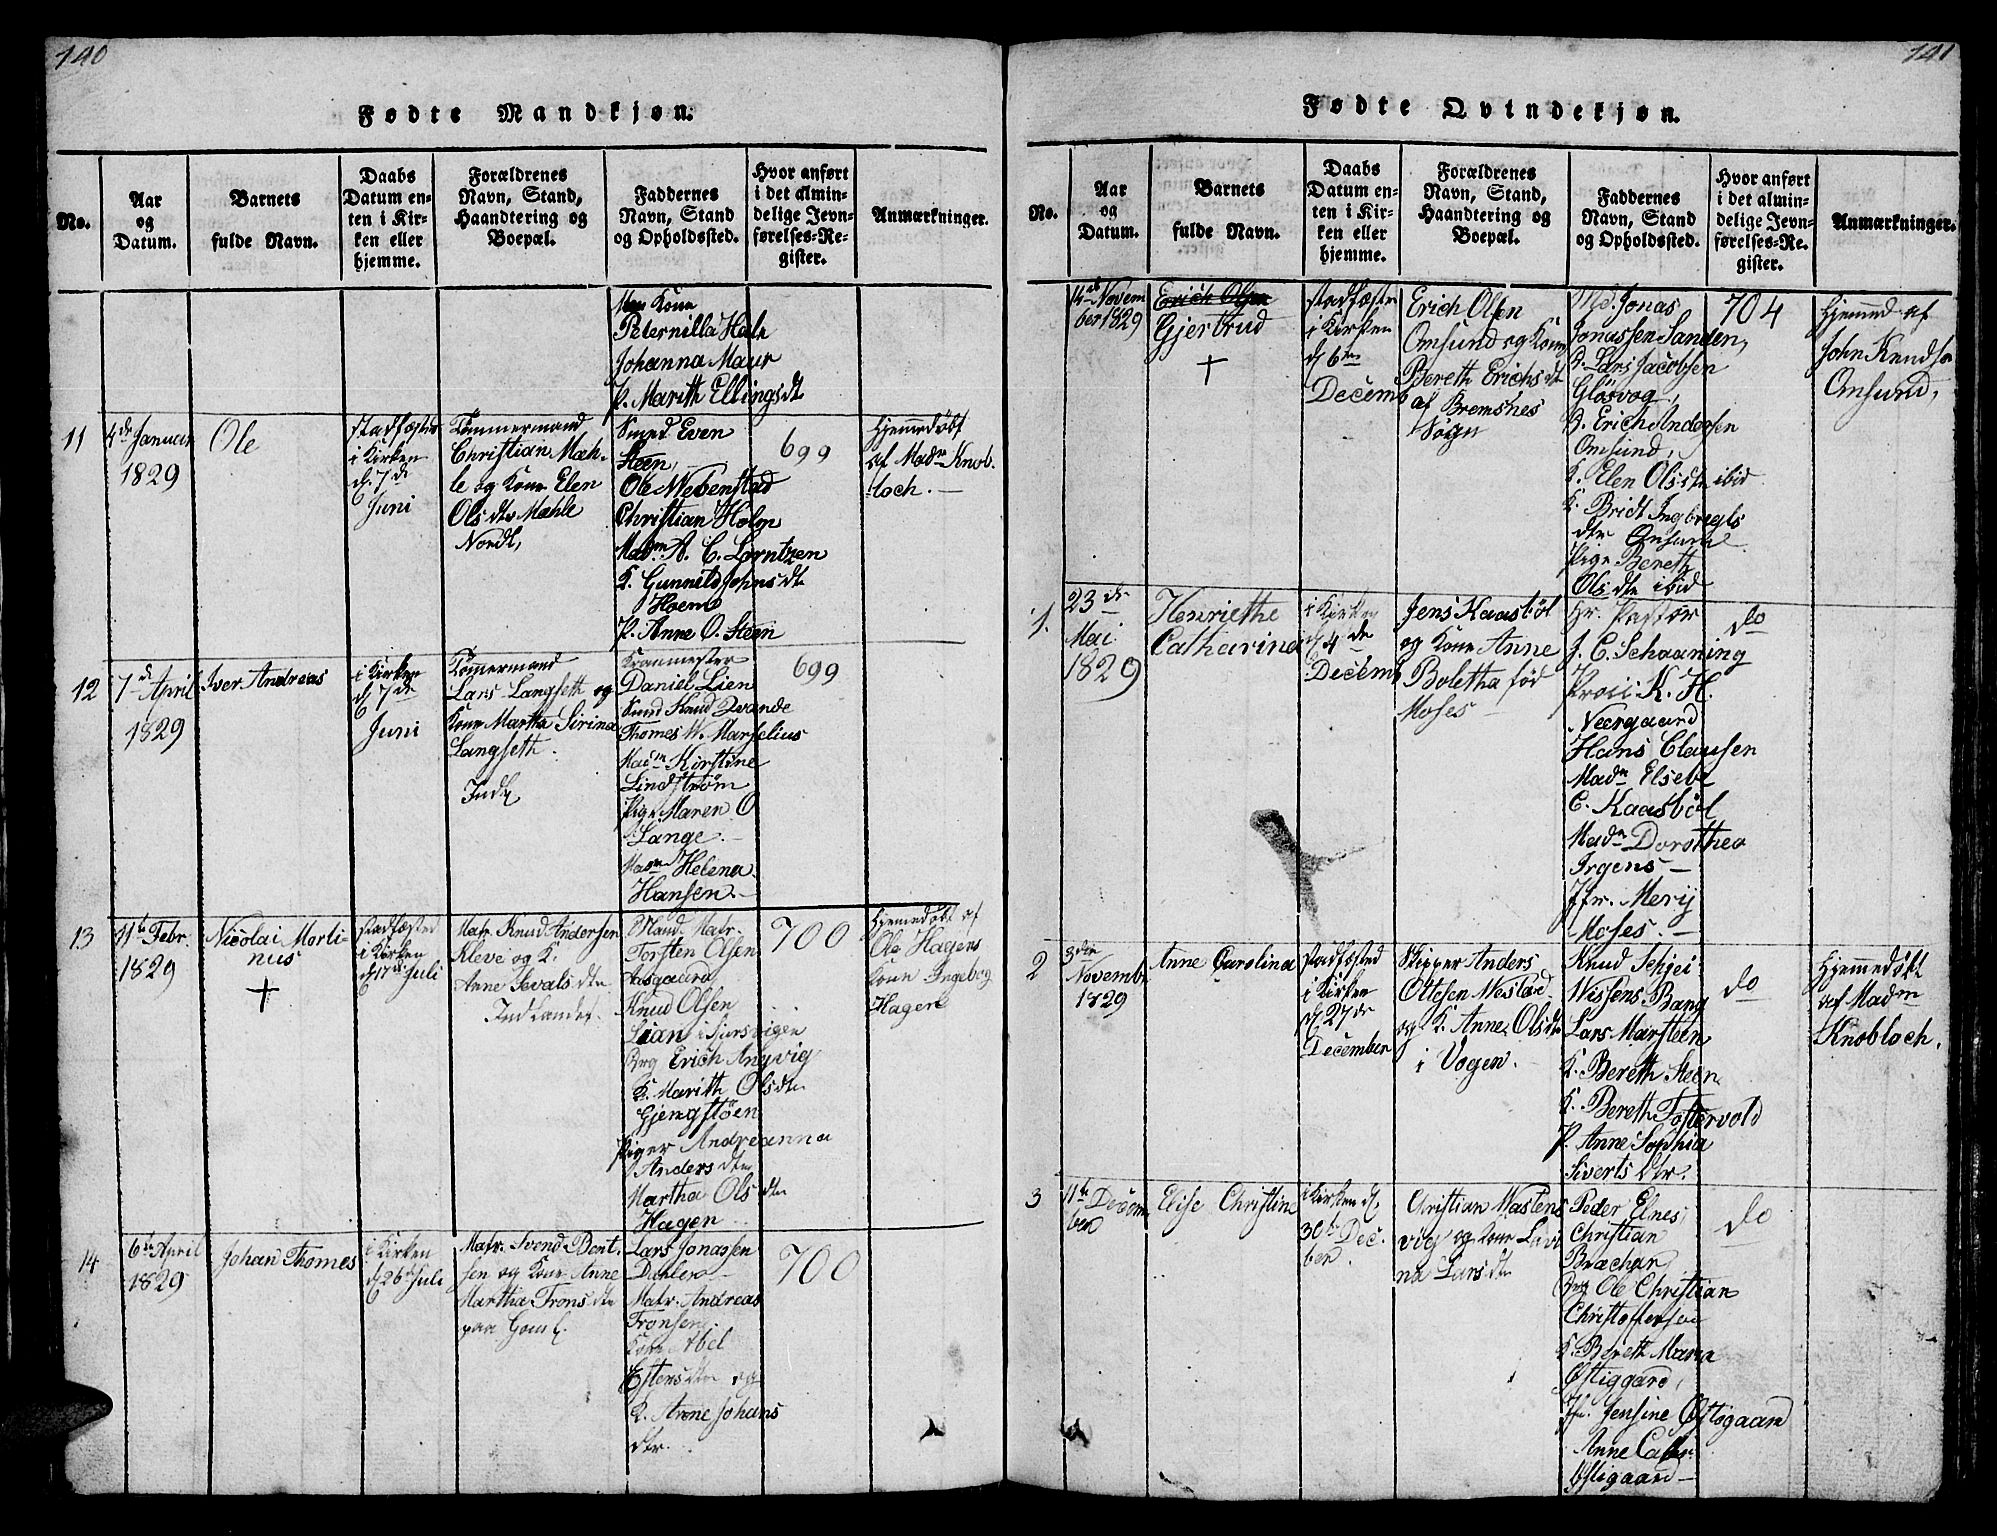 140
Fødte Mandkjøn.
No.
Aar
og
Datum.
Barnets
fulde Navn.
Daabs
Datum en-
ten i Kir-
ken eller
hjemme.
Forældrenes
Navn, Stand,
Haandtering og
Boepæl.
Faddernes
Navn, Stand
og Opholdssted.
Hvor anført
i det almin-
delige Jevn-
førelses-Re-
gister.
Anmærkninger.
Kone
Peternilla Hals
Johanna Maur
P. Marith Ellingsdt
11
4de Januar
1829
Ole
stadfæstet
i Kirken
d. 7de
Juni
Tömmermand
Christian Mæh-
le og Kone Elen
Olsdtr Mæhle
Nordl,
Smed Even
Steen,
Ole Nebenstad
Christian Holm
Madm A. C. Lorntzen
K. Gunnild Johnsdt
Hoem
P. Anne O. Steen
699
Hjemmedöbt
af Madm Knob-
loch.
12
7de April
1829
Iver Andreas
i Kirken
d. 7de
Juni
Tömmermand
Lars Langseth og
Kone Martha Sirina
Langseth.
Indl
Kranmester
Daniel Lien
Smed Knud Qvande
Thomes W. Marselius
Madm Kirstine
Lindstrøm
Pige Maren O
Lange.
Madm Helena
Hansen.
699
13
11te Febr.
1829
Nicolai Marti-
nus
+
stadfæsted
i Kirken
d. 17de Juli
Matr. Knud Andersen
Kleve og K.
Anne Sevalsdtr
Indlandet.
Matr.
Torsten Olsen
Aasgaard
Knud Olsen
Lian i Sursvigen
Erich Angvig
K. Marith Olsdtr
Gjengstöen
Piger Andreanna
Andersdtr
Martha Olsdtr
Hagen
700
Hjemmedöbt af
Ole Hagens
Kone Ingebog
Hagen
14
6te April
1829
Johan Thomes
i Kirken
d. 26de Juli
Matr. Svend Bent-
sen og Kone Anne
Martha Tronsdtr
paa Goml.
Lars Jonassen
Dahler
Matr. Andreas
Tronsen
Kone Abel
Estensdtr og
K. Anne Johans
dtr.
700
141
Fødte Qvindekjøn.
No.
Aar
og
Datum.
Barnets
fulde Navn.
Daabs
Datum en-
ten i Kir-
ken eller
hjemme.
Forældrenes
Navn, Stand,
Haandtering og
Boepæl.
Faddernes
Navn, Stand
og Opholdssted.
Hvor anført
i det almin-
delige Jevn-
førelses-Re-
gister.
Anmærkninger.
14de Novem
ber 1829
Erich Olsen
Gjertrud
+
stadfæstet
i Kirken
d. 6te
Decemb
Erich Olsen
Omsund og Kone
Bereth Erichsdt
af Bremsnes
Sogn
Md. Jonas
Jonassen Sanden,
Lars Jacobsen
Glösvog,
Erich Andersen
Omsund,
K. Elen Olsdtr ibid
K. Bridt Ingbregts
dtr Omsund
Pige Bereth
Olsdtr ibid
704
Hjemmed af
John Knudsn
Omsund,
1.
23de
Mai
1829
Henriethe
Catharina
i Kirken
d. 4de
Decemb
Jens Kaasböl
og Kone Anne
Boletha fød
Moses
Hr. Pastor
J. C. Schaaning
K. H.
Neergaard
Hans Clausen
Madm Elsebe
C. Kaasböl
Madm Dorothea
Irgens
Jfr. Merij
Moses.
do
2
3die
Novemb.
1829
Anne Carolina
stadfæsted
i Kirken
d. 27de
December
Skipper Anders
Ottesen Nestad
og K. Anne Olsdtr
i Vogen.
Knud Schjei
Nissens Bang
Lars Marsteen
K. Bereth Steen
K. Bereth Tostervold
P. Anne Sophia
Siverts dtr.
do
Hjemmedöbt
af Madm
Knobloch.
3
11te Decem
ber
Elise Christine
i Kirken d.
30te Dec.
ber.
Christian Mastens
vig og Kone Lavi
na Larsdtr
Peder Elnes
Christian
Brachan
Ole Christian
Christoffersen
K. Bereth Maria
Østiggard,
Jfr. Jensine Østigaard
Anne Cathr.
Østigaard
do